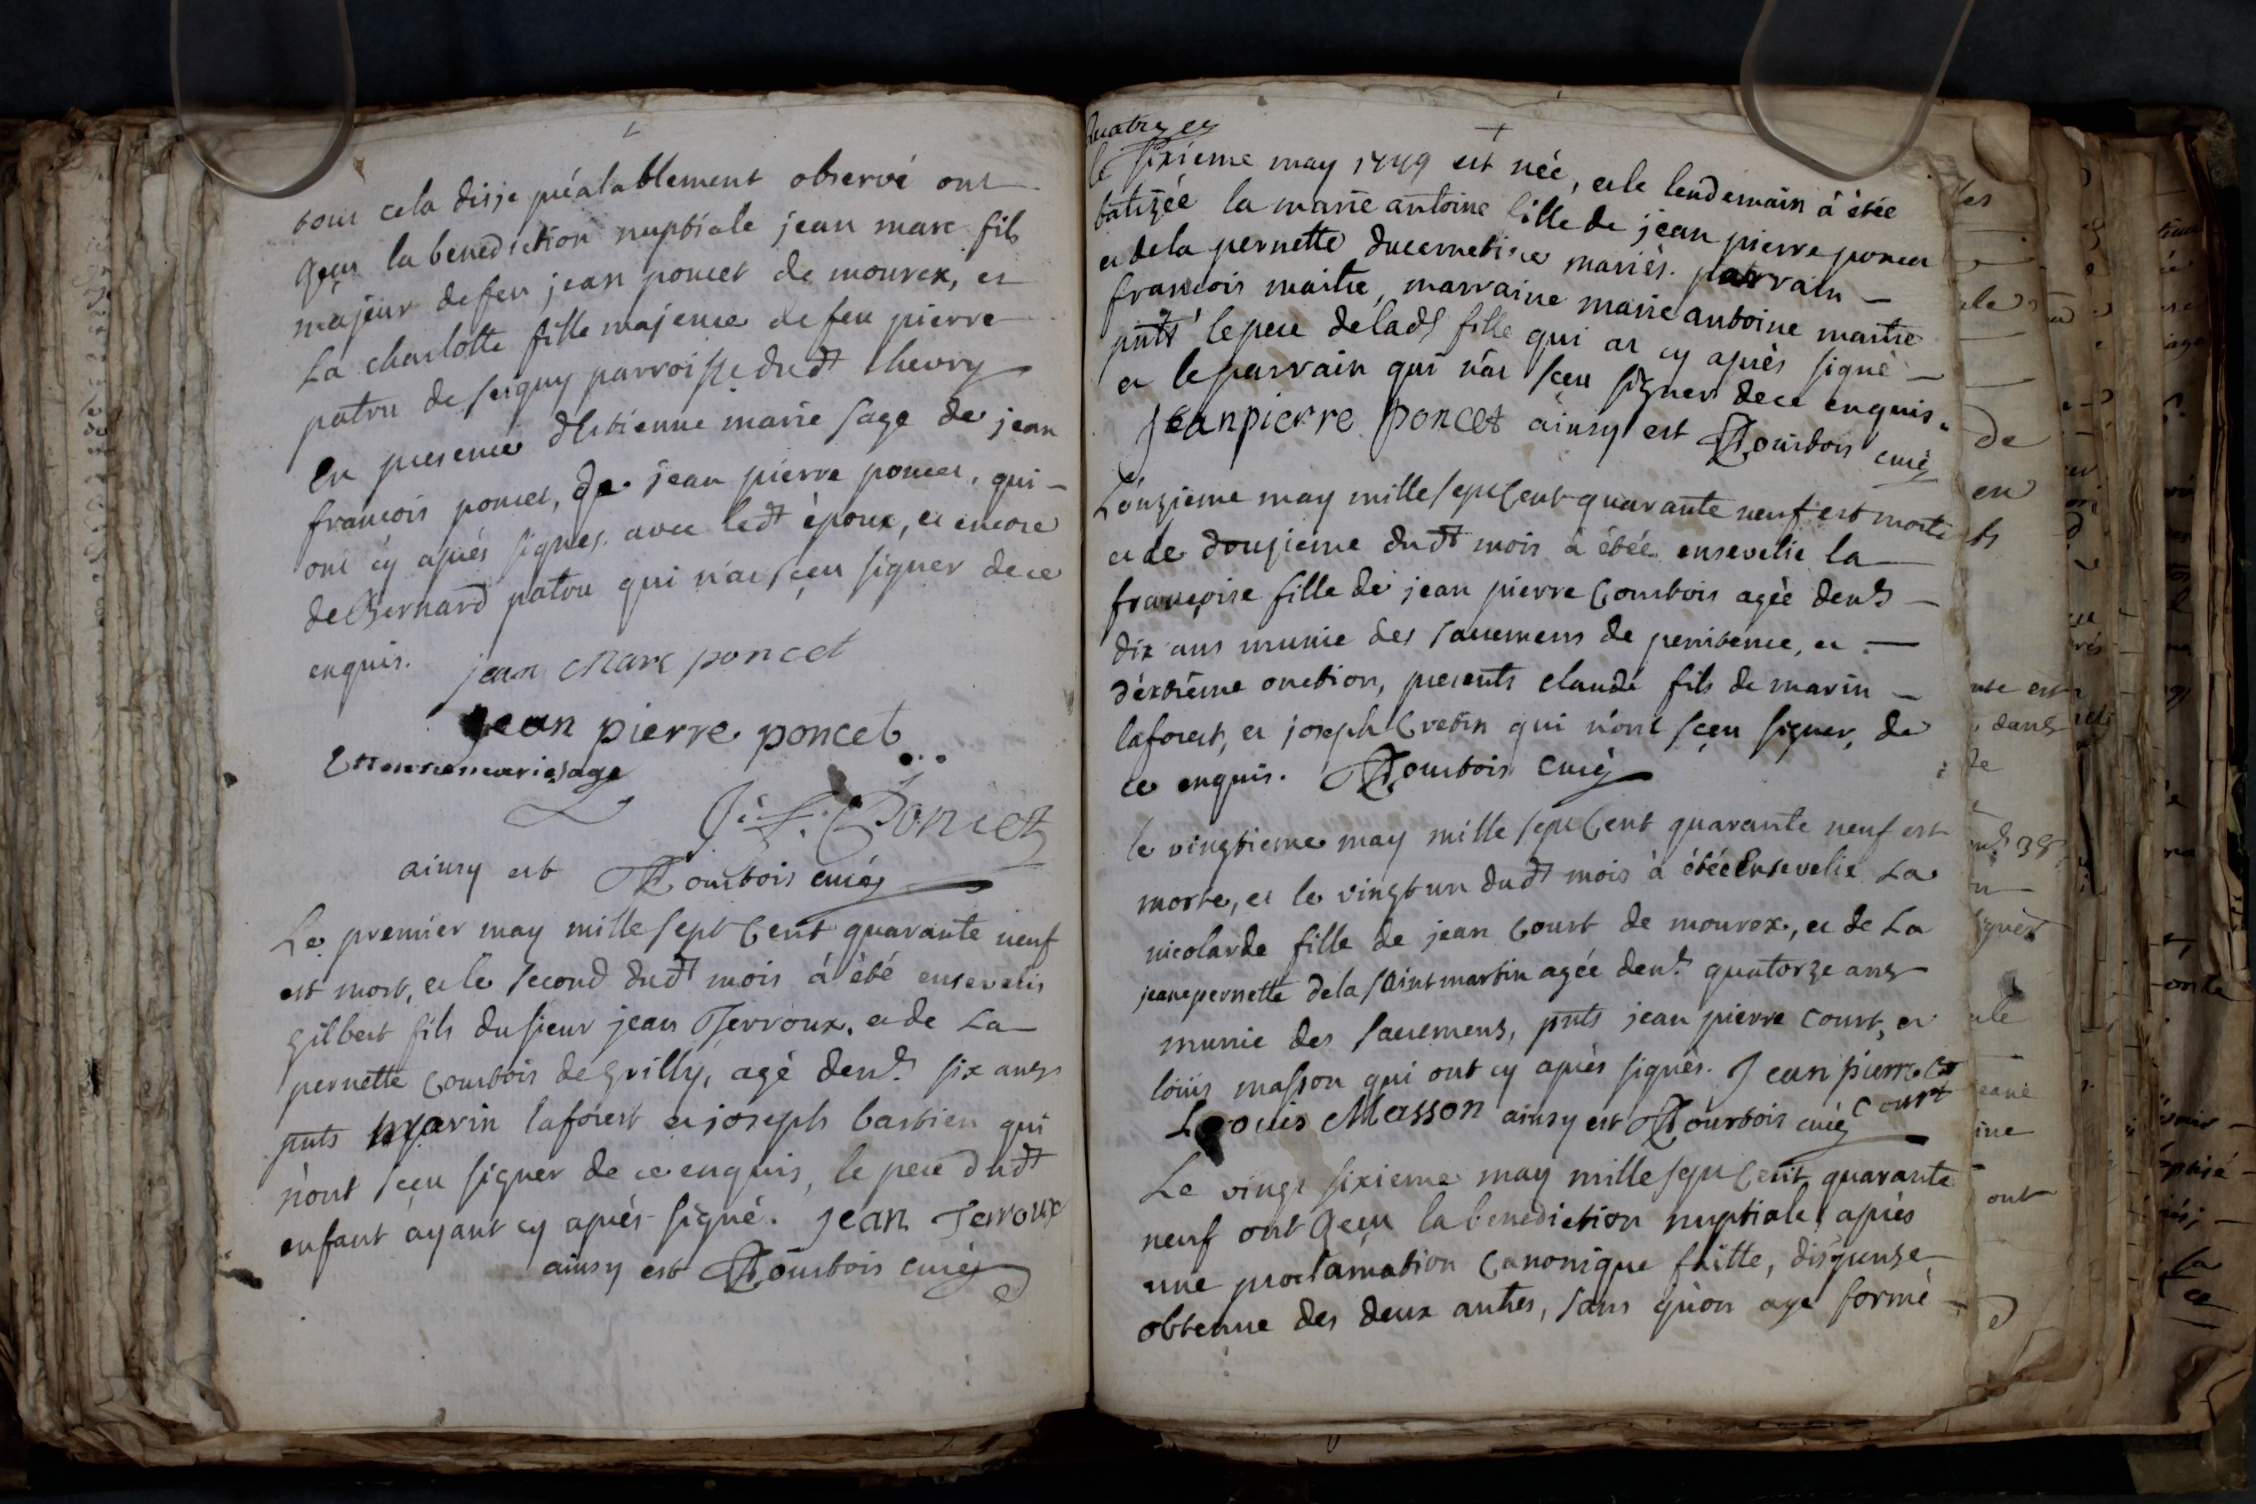 tout cela disje préalablement observé ont
Reçus la benediction nuptiale jean marc fils
majeur de feu jean poncet de mourex, et
La charlotte fille majeure de feu pierre
patru de segny parroisse dudt chevry
En presence d'Estienne marie sage de jean
françois poncet, de jean pierre poncet, qui
ont cy après signes avec ledt époux, et encore
de Bernard patru qui n'at sçeu signer de ce
enquis. jean Marc poncet
jean pierre poncet
Ettienne marie sage
J: f. Poncet
ainsy est Courtois curé
Le premier may mille sept Cent quarante neuf
est mort, et le second dudt mois á èté enseveli
gilbert fils du sieur jean Terroux, et de La
pernette Courtois de grilly, agé denv. six ans
pnts Marin laforest et joseph bastien qui
n'ont sçeu signer de ce enquis, le pere dudt
enfant ayant cy après signé. jean Terroux
ainsy est Courtois curé
Quatre et
le Sixieme may 1749 est née, et le lendemain á étée
batizée la marie antoine fille de jean pierre poncet
et de la pernette ducernetise mariès. parrain
françois maitre, marraine marie antoine maitre
pnts le pere de ladt fille qui at cy après signé
et le parrain qui n'at sçeu signer de ce enquis.
jeanpierre poncet ainsy est Courtois curé
L'onzieme may mille sept Cent quarante neuf est morte
et le douzieme dudt mois à étée ensevelie la
françoise fille de jean pierre Courtois agée denv.
dix ans munie des sacremens de penitence, et
d'éxtrème onction, presents claude fils de marin
laforest, et joseph Cretin qui n'ont sçeu signer, de
ce enquis. Courtois curé
le vingtieme may mille sept Cent quarante neuf est
morte, et le vingt un dudt mois à étée Ensevelie La
nicolarde fille de jean Court de mourex, et de La
jeanepernette dela saint martin agée denv. quatorze ans
munie des sacremens, pnts jean pierre Court, et
loüis masson qui ont cy après signès. Jean pierre Co
Court
Louis Masson ainsy est Courtois curé
Le vingt sixieme may mille sept Cent quarante
neuf ont Reçu la benediction nuptiale après
une proclamation Canonique faitte, dispense
obtenue des deux autres, sans qu'on aye formé